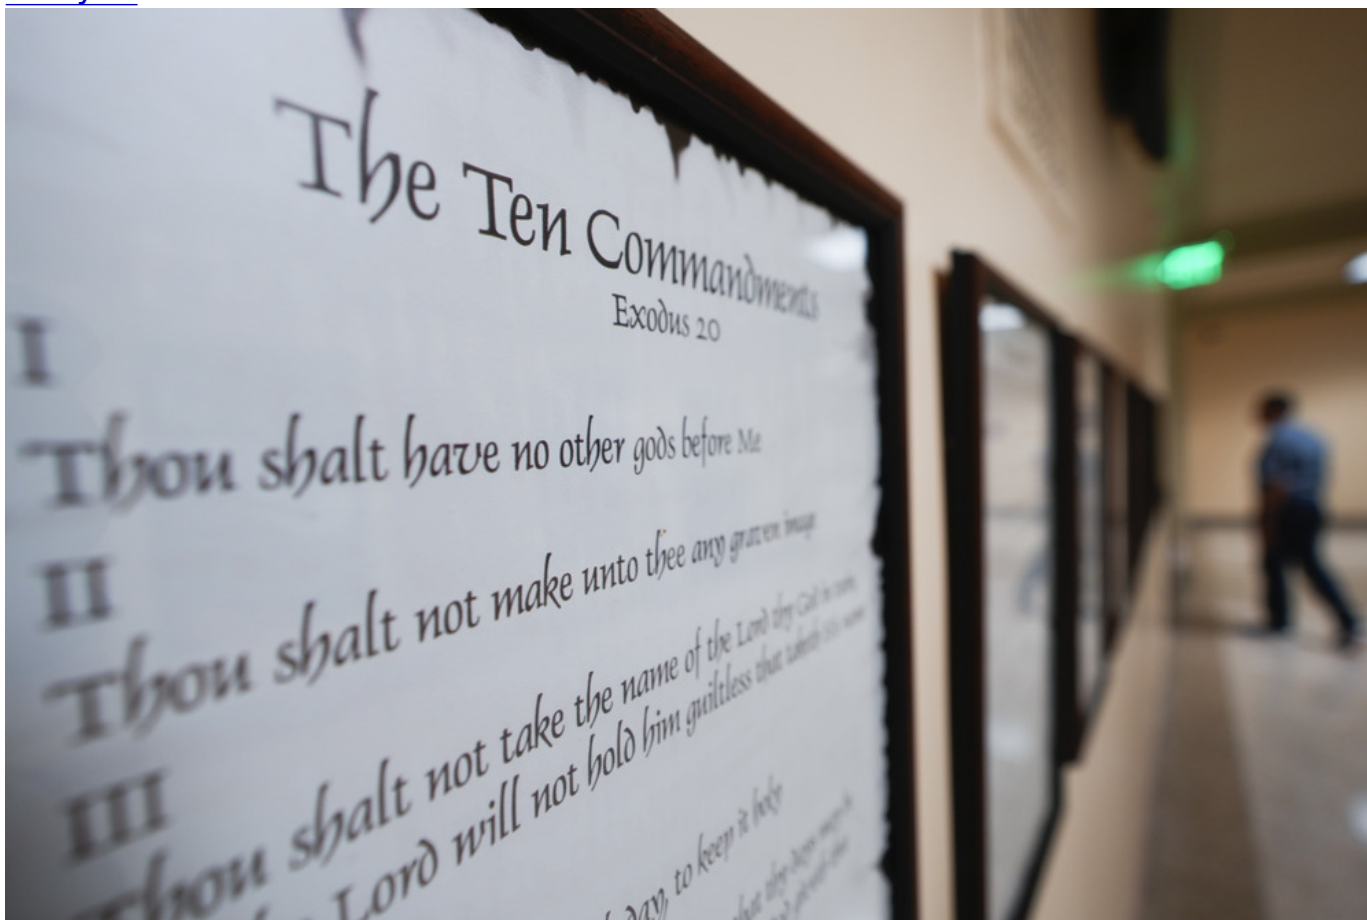 The Ten Commandments
Exodus 20
I
Thou shalt have no other gods before Me
II
Thou shalt not make unto thee any graven image
III
Thou shalt not take the name of the Lord thy God in vain,
Lord will not hold him guiltless that taketh His name
day, to keep it holy
that thy days may b
EXIT